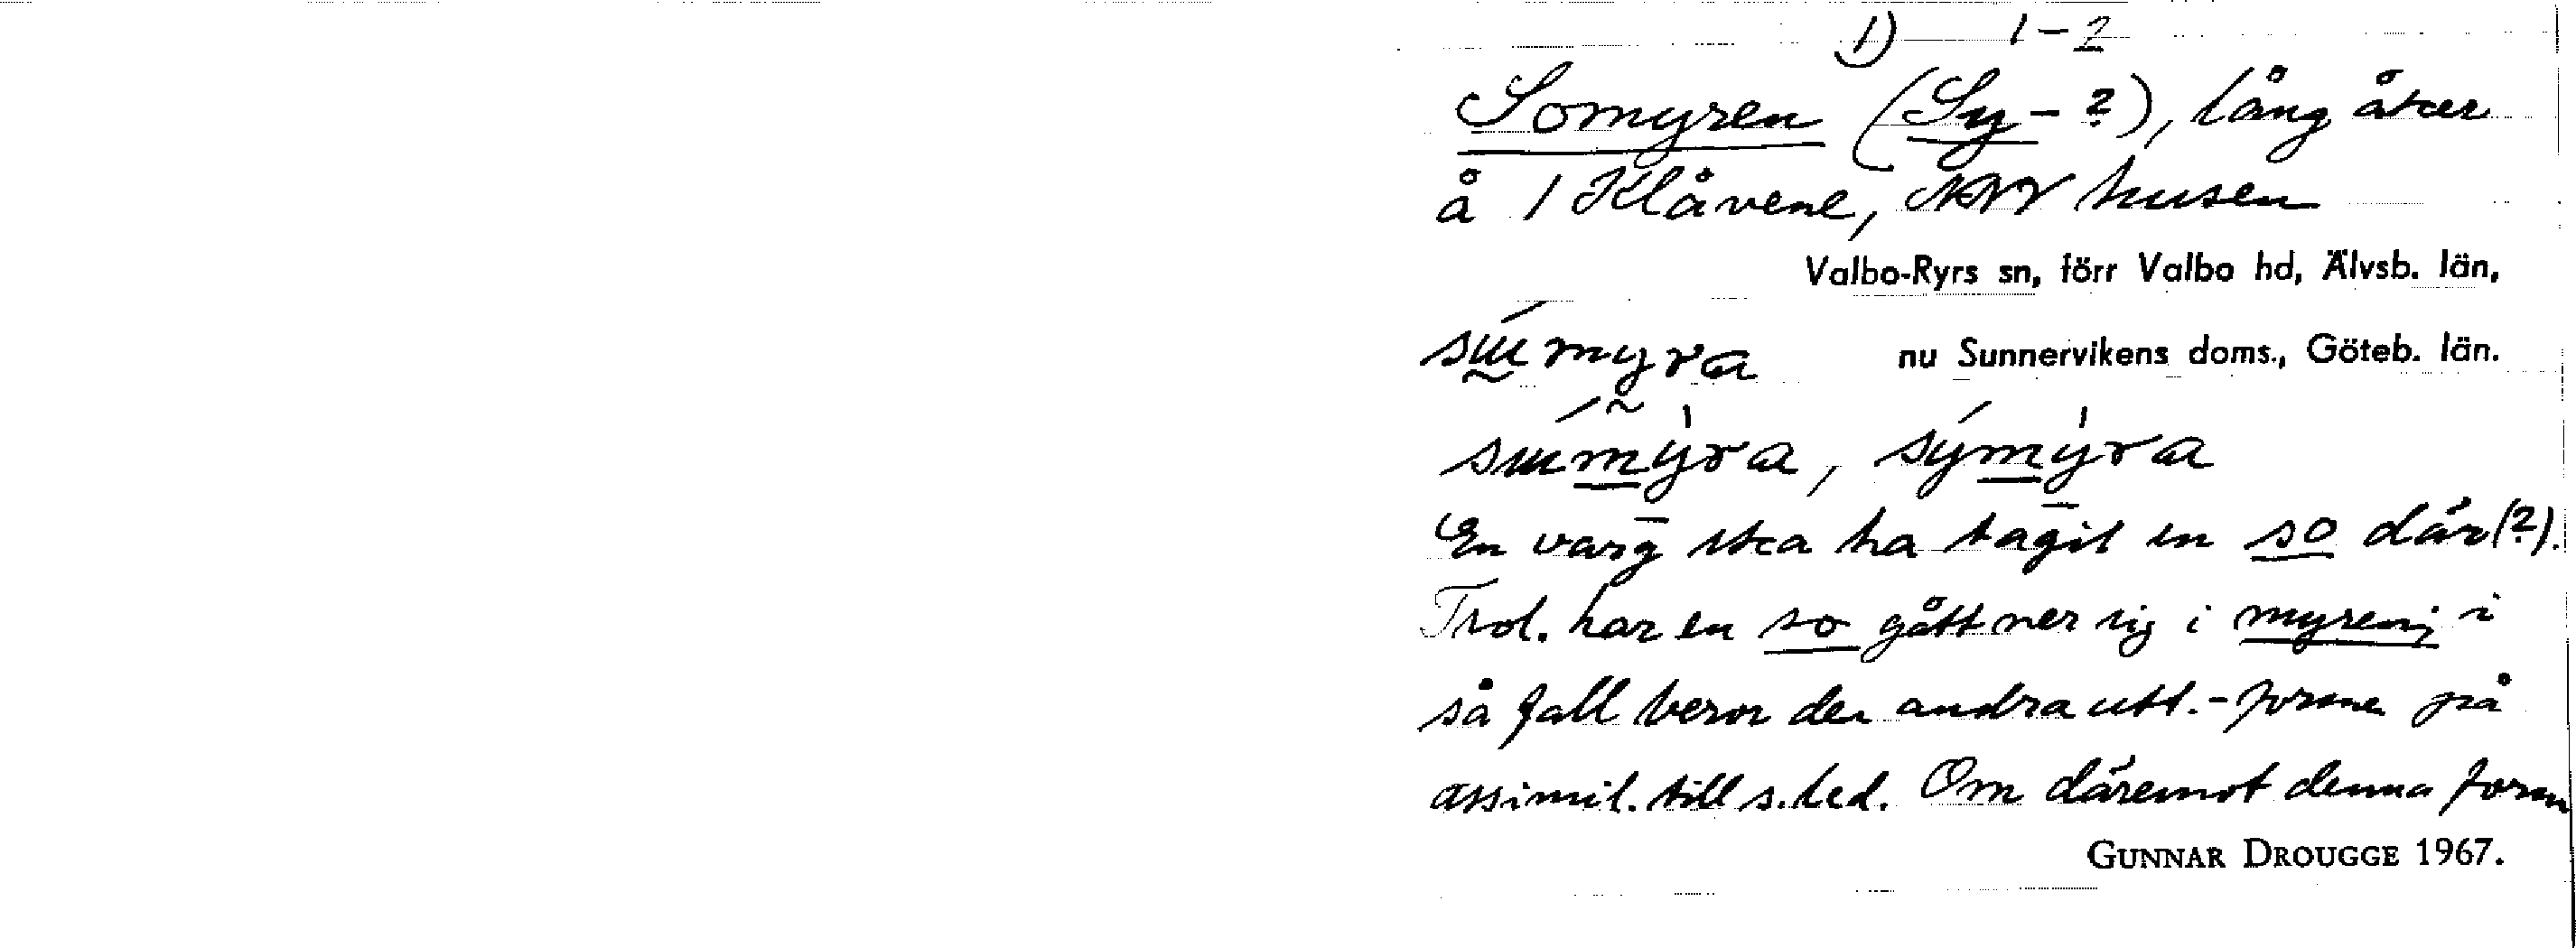 1) 1-2
Somyren (Sy-?), lång åker
å 1 Klåvene, NNV husen
Valbo-Ryrs sn, förr Valbo hd, Älvsb. län,
sɯ́myra nu Sunnervikens doms., Göteb. län.
sɯ́mỳra, sýmỳra
En varg ska ha tagit en so där(?).
Trol. har en so gått ner sig i myren; i
så fall beror den andra utt.-formen på
assimil. till s.led. Om däremot denna form
GUNNAR DROUGGE 1967.